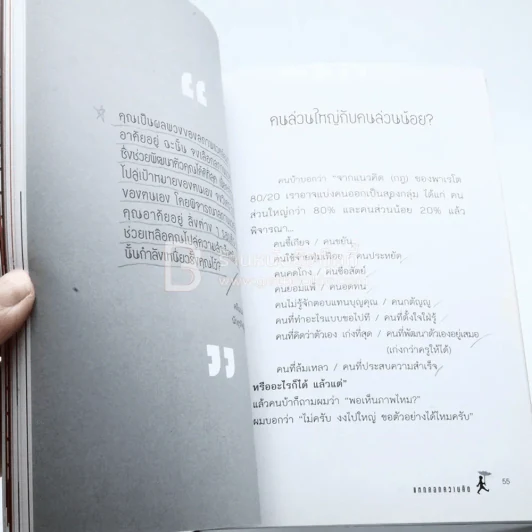 “
คุณเป็นผลพวงของสภาพแวด
อาศัยอยู่ ฉะนั้น จงเลือกสภาพ
ซึ่งช่วยพัฒนาตัวคุณได้ดีที่สุด
ไปสู่เป้าหมายของคุณเอง
ของคุณเอง โดยพิจารณาสภาพ
คุณอาศัยอยู่ สิ่งต่าง ๆ รอบ
ช่วยเหลือคุณไปสู่ความสำเร็จ
นั้นกำลังเหนี่ยวรั้งคุณไว้?
”
คนส่วนใหญ่กับคนส่วนน้อย?
คนบ้าบอกว่า “จากแนวคิด (กฎ) ของพาเรโต
80/20 เราอาจแบ่งคนออกเป็นสองกลุ่ม ได้แก่ คน
ส่วนใหญ่กว่า 80% และคนส่วนน้อย 20% แล้ว
พิจารณา...
คนขี้เกียจ / คนขยัน
คนใช้จ่ายฟุ่มเฟือย / คนประหยัด
คนคดโกง / คนซื่อสัตย์
คนยอมแพ้ / คนอดทน
คนไม่รู้จักตอบแทนบุญคุณ / คนกตัญญู
คนที่ทำอะไรแบบขอไปที / คนที่ตั้งใจใฝ่รู้
คนที่คิดว่าตัวเอง เก่งที่สุด / คนที่พัฒนาตัวเองอยู่เสมอ
(เก่งกว่าครูให้ได้)
คนที่ล้มเหลว / คนที่ประสบความสำเร็จ
หรืออะไรก็ได้ แล้วแต่”
แล้วคนบ้าก็ถามผมว่า “พอเห็นภาพไหม?”
ผมบอกว่า “ไม่ครับ งงไปใหญ่ ขอตัวอย่างได้ไหมครับ”
55